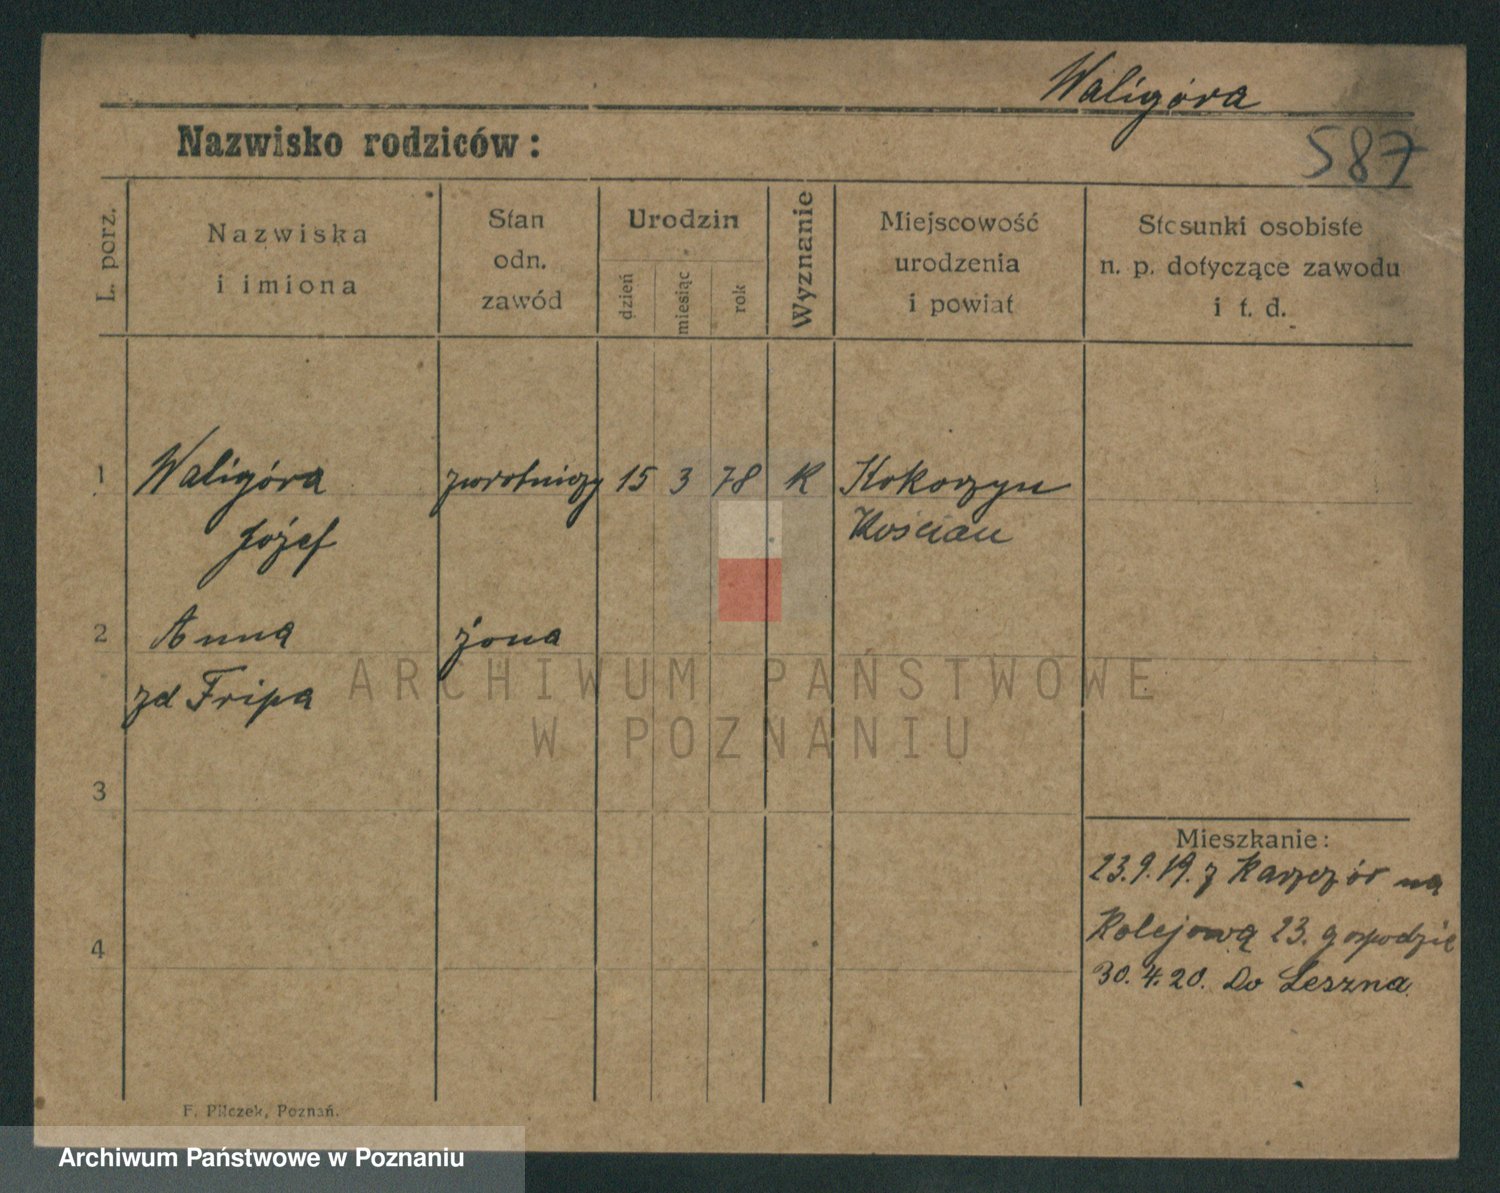 Waligóra
Nazwisko rodziców:
587
L. porz.
Nazwiska
i imiona
Stan
odn.
zawód
Urodzin
dzień
miesiąc
rok
Wyznanie
Miejscowość
urodzenia
i powiat
Stosunki osobiste
n. p. dotyczące zawodu
i t. d.
1 Waligóra zwrotniczy 15 3 78 K Kokorzyn
Józef Kościan
2 Anna żona
zd Fripa
ARCHIWUM PAŃSTWOWE
W POZNANIU
3
Mieszkanie:
23.9.19. z Karczór na
4 Kolejową 23. gospodzie
30.4.20. Do Leszna.
F. Pilczek, Poznań.
Archiwum Państwowe w Poznaniu